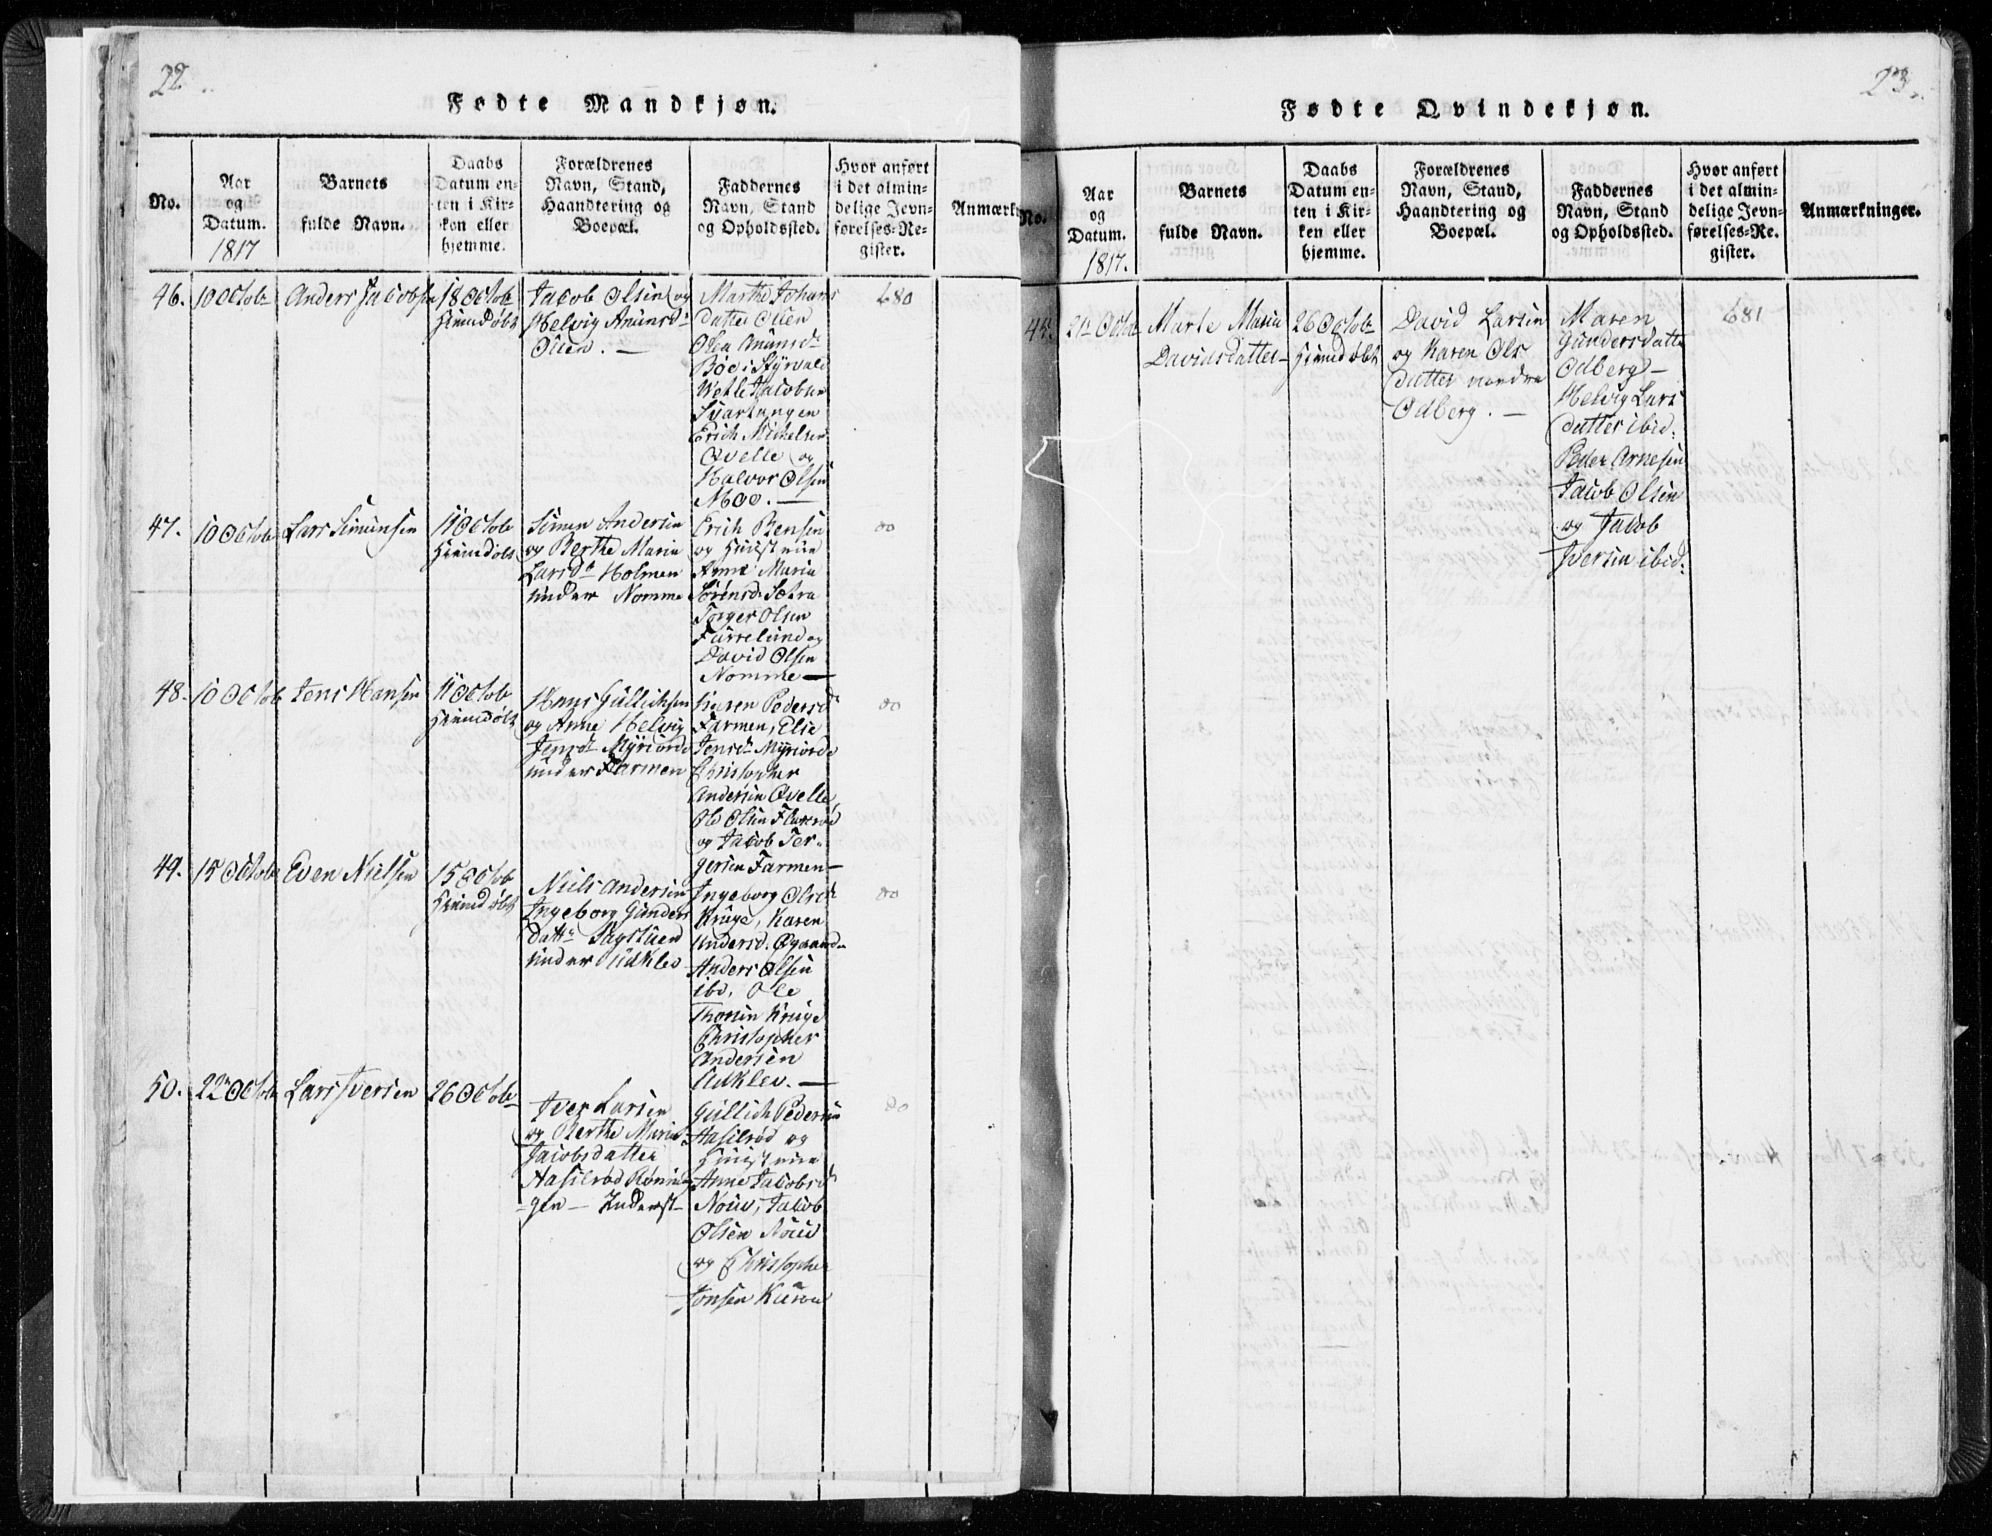 22
Fødte Mandkjøn.
No.
Aar
og
Datum.
1817
Barnets
fulde Navn.
Daabs
Datum en-
ten i Kir-
ken eller
hjemme.
Forældrenes
Navn, Stand,
Haandtering og
Boepæl.
Faddernes
Navn, Stand
og Opholdssted.
Hvor anført
i det almin-
delige Jevn-
førelses-Re-
gister.
46.
10 Octob
Anders Jacobsen
18 Octob
Hiemdøbt
Jacob Olsen og
Helvig Anunsdr
Marthe Johans
datter
Olea Anunsdr
Bøe i Styrvold
Vetle Jacobsen
Svartangen
Erich Michelsen
Qvelle og
Halvor Olsen
Moe. —
680
47.
10 Octob
Lars Simonsen
11 Octob
Hiemdøbt
Simon Andersen
og Berthe Maria
Larsdr Holmen
under Nomme
Erich Bensen
og Hustrue
Anne Maria
Sørensd. Sætra
Torger Olsen
Furrelund og
David Olsen
Nomme —
do
48.
10 Octob
Jens Hansen
11 Octob
Hiemdøbt
Hans Gullichsen
og Anne Helvig
Jensdr
under Farmen
Karen Pedersdr
Farmen, Elie
Jensdr
Christopher
Andersen Qvelle
Ole Olsen
og Jacob Ter-
gersen Farmen —
do
49.
15 Octob
Even Nielsen
15 Octob
Hiemdøbt
Niels Andersen
Ingeborg Gunders
dattr Sagstuen
under Aaklev
Ingeborg Olsdr
Kruge, Karen
Andersd.
Anders Olsen
ibd, Ole
Thorsen Kruge
Christopher
Andersen
Aaklev. —
do
50.
22 Octob
Lars Iversen
26 Octob
Iver Larsen
og Berthe Maria
Jacobsdatter
Hasilrød Rønnin
-gen — Inderst
Gullich Pedersen
Hasilrød og
Hustrue
Anne Jacobsdr
Jacob
Olsen
og Christopher
Jonsen
do
23
Fødte Qvindekjøn.
No.
Aar
og
Datum.
1817.
Barnets
fulde Navn.
Daabs
Datum en-
ten i Kir-
ken eller
hjemme.
Forældrenes
Navn, Stand,
Haandtering og
Boepæl.
Faddernes
Navn, Stand
og Opholdssted.
Hvor anført
i det almin-
delige Jevn-
førelses-Re-
gister.
Anmærkninger.
21 Octob
Marte Maria
Davidsdatter
26 Octob
Hiemdøbt
David Larsen
og Karen Ols
datter nordre
Odberg. —
Maren
Gundersdatter
Odberg —
Helvig Lars
datter ibid.
Peder Arnesen
Jacob Olsen
og Jacob
Iversen ibid.
681